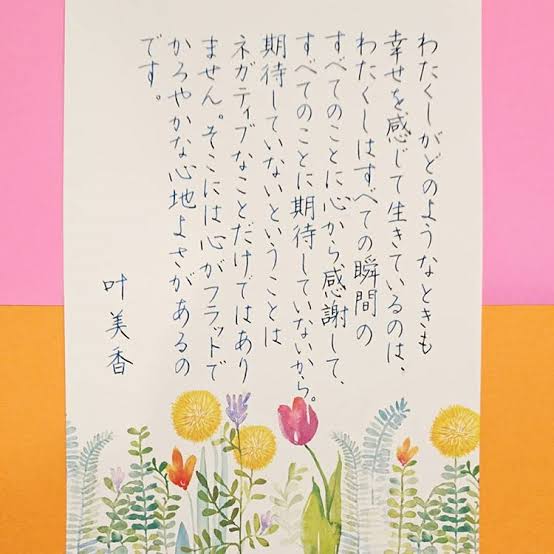 わたくしがどのようなときも
幸せを感じて生きているのは、
わたくしはすべての瞬間の
すべてのことに心から感謝して、
すべてのことに期待していないから。
期待していないということは
ネガティブなことだけではあり
ません。そこには心がフラットで
かろやかな心地よさがあるの
です。
叶美香